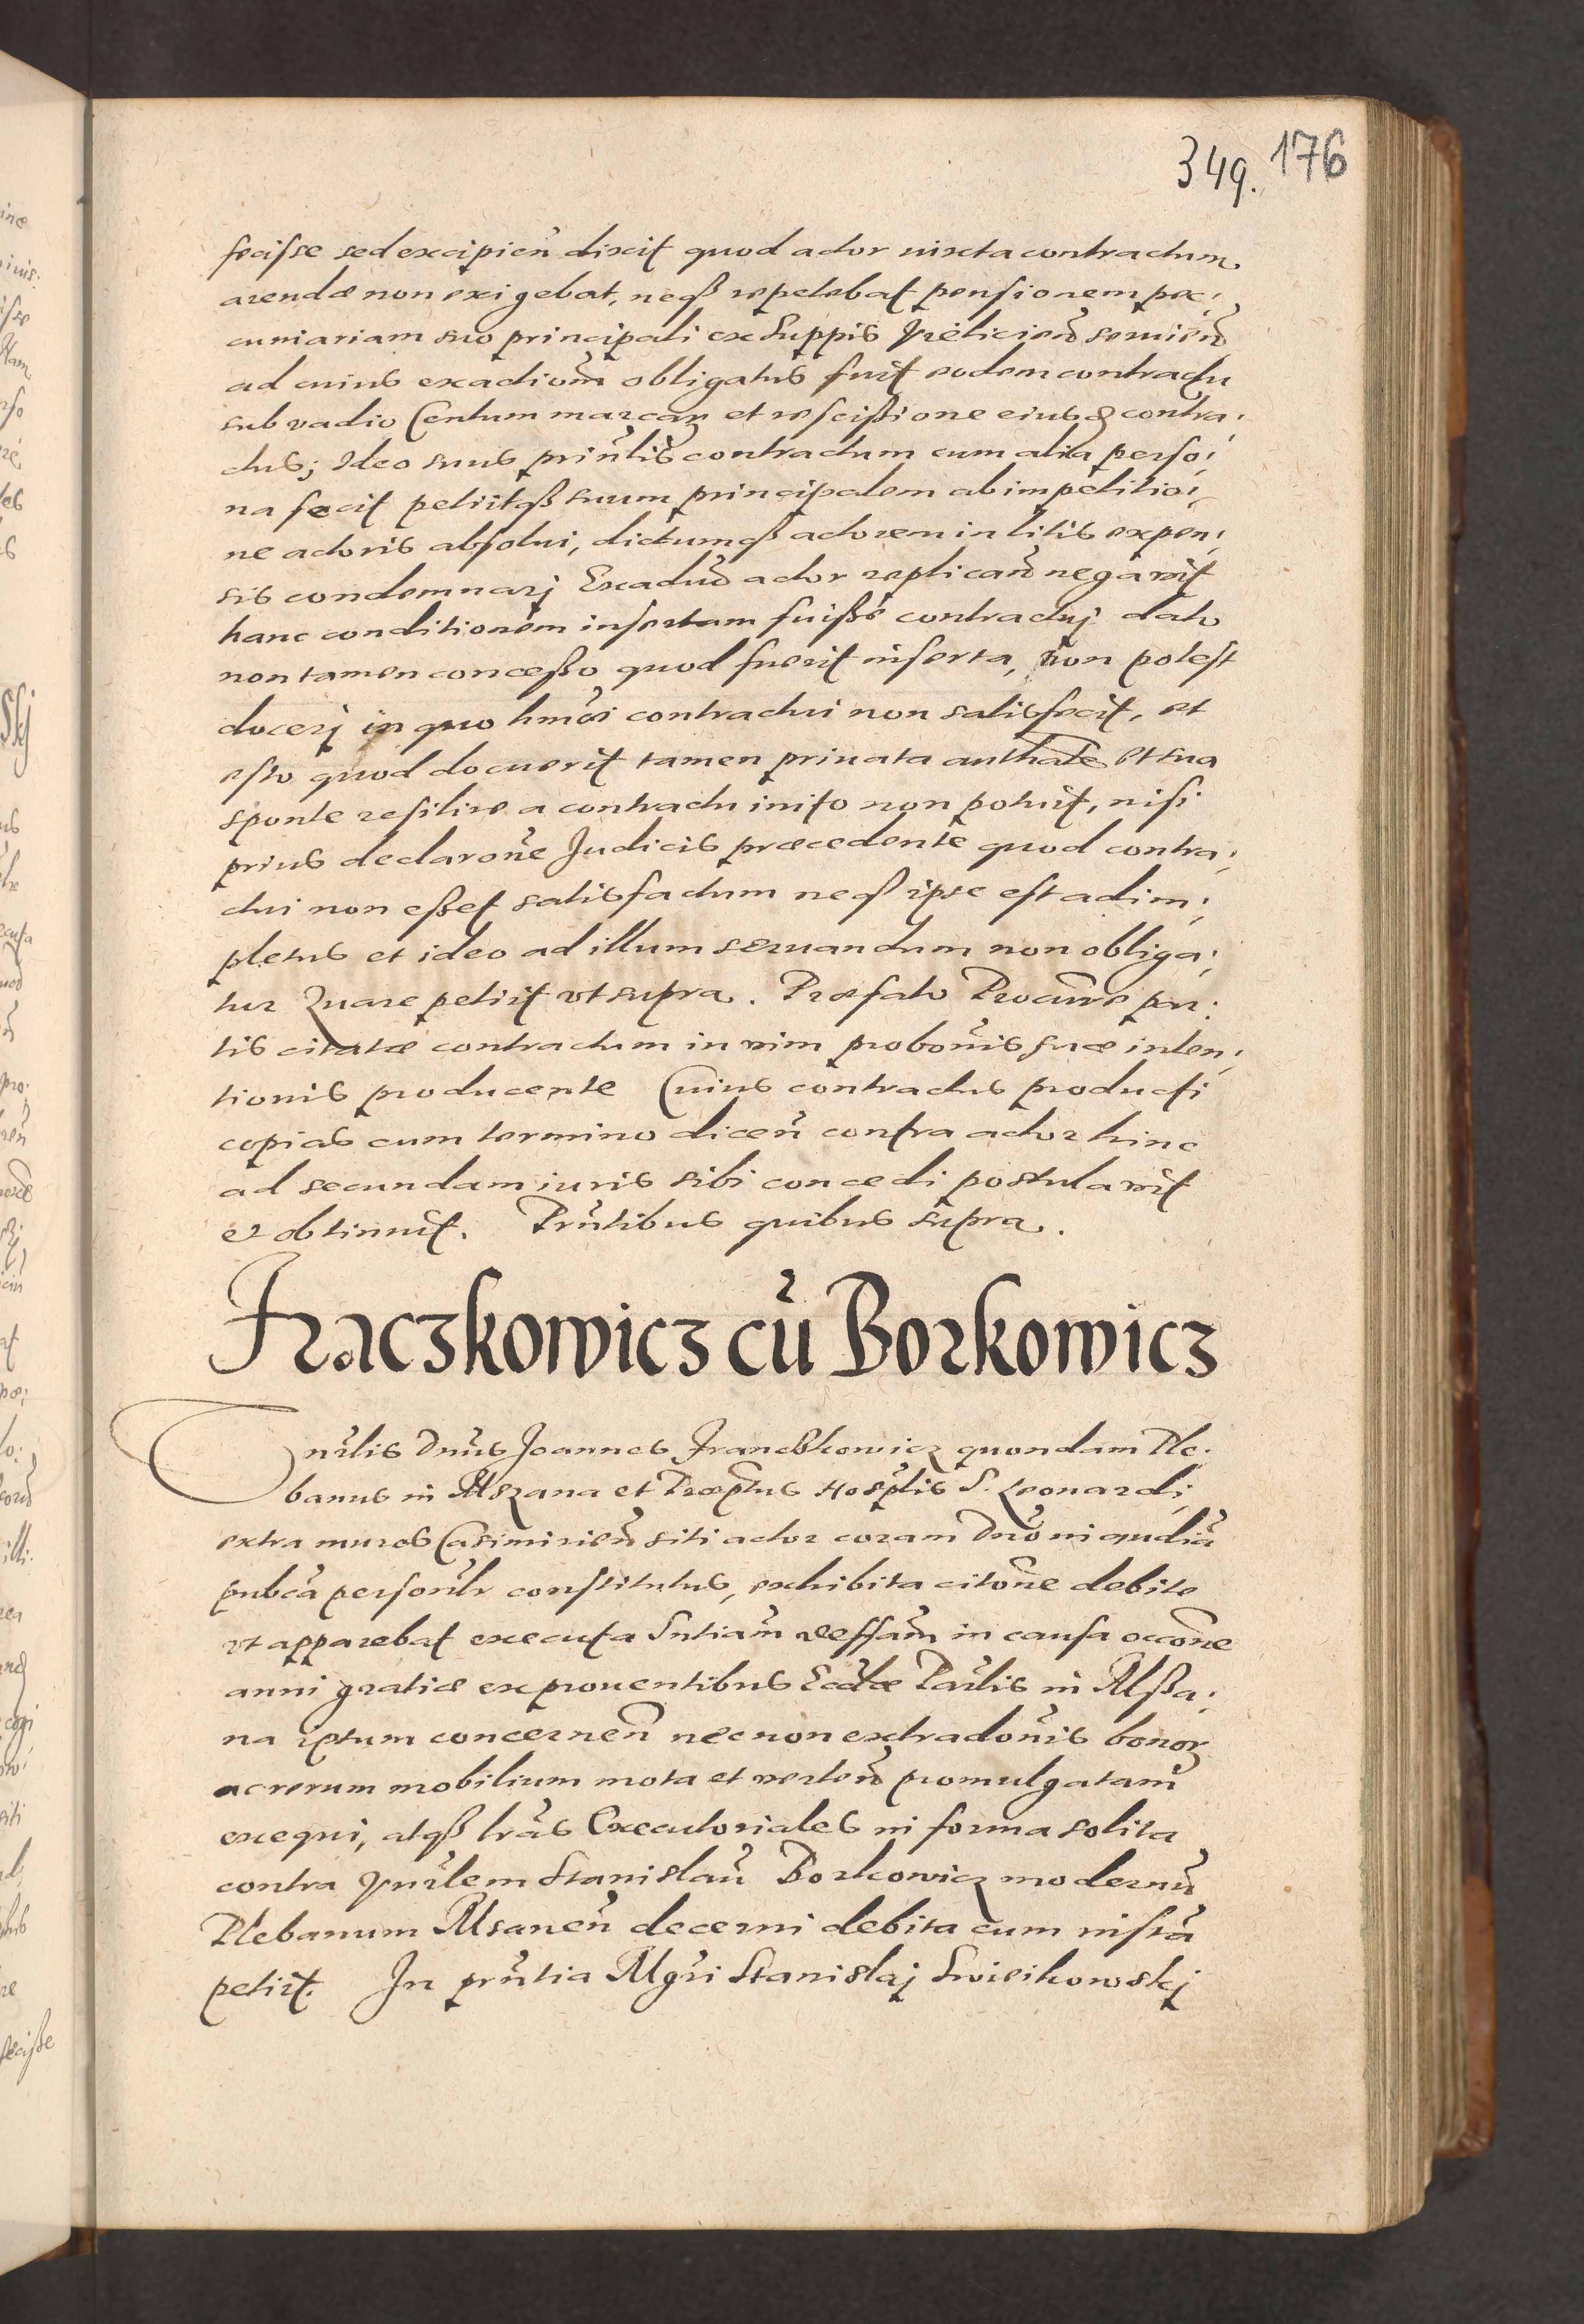 349. 176
fecisse sed excipien̄ dixit quod actor iuxta contractum
arendæ non exigebat, neqß repetebat pensionem pec:
cuniariam suo principali ex Suppis Vieliciens̄ seruien̄
ad cuius exactionē obligatus fuit eodem contractu
sub vadio Centum marcar̄ et rescißione eiusd̄ contra:
ctus; Ideo suus prin̄lis contractum cum alia perso:
na fecit petiitqß suum principalem ab impetitio:
ne actoris absolui, dictumqß actorem in litis expen:
sis condemnarj Ex aduer̄ actor replican̄ negauit
hanc conditionem insertam fuiße contractuj dato
non tamen conceßo quod fuerit inserta, non potest
docerj in quo hmōi contractui non satisfecit, et
esto quod docuerit tamen priuata authāte et sua
sponte resilire a contractu inito non potuit, nisi
prius declaraōne Judicis præcedente quod contra:
ctui non eßet satisfactum neqß ipse est adim:
pletus et ideo ad illum seruandum non obliga:
tur Quare petiit vt supra. Præfato Procurē par:
tis citatæ contractum in vim probōnis suæ inten:
tionis producente Cuius contractus producti
copias cum termino dicen̄ contra actor hinc
ad secundam iuris sibi concedi postulauit
et obtinuit. Prn̄tibus quibus supra.
Fraczkowicz cū Borkowicz
Vn̄rlis Dnūs Joannes Franczkowicz quondam Ple:
banus in Mszana et Præptūs Hosptlis S. Leonardi
extra muros Casimirien̄ siti actor coram Dnō in audiā
pubcā persoñlr constitutus, exhibita citōne debite
vt apparebat executa Sntiam̄ in causa occōne
anni gratiæ ex prouentibus Ecclæ Parlis in Mßa:
na ipsum concernen̄ necnon extradōnis bonor̄
ac rerum mobilium mota et verten̄ promulgatam
exequi, atqß lrās Executoriales in forma solita
contra Vnrlem Stanislaū Borkowicz modernū
Plebanum Msanen̄ decerni debita cum instā
petiit. In prn̄tia Mgrī Stanislaj Swieikowskj